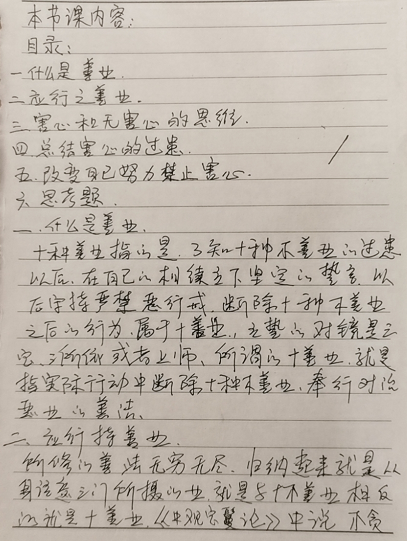 本节课内容:
目录:
一.什么是善业.
二.应行之善业.
三.害心和无害心的思维.
四.总结害心的过患.
五.改变自己努力禁止害心.
六.思考题.
一.什么是善业.
十种善业指的是.了知十种不善业的过患
以后.在自己的相续立下坚定的誓言.以
后守持严禁恶行戒,断除十种不善业
之后的行为.属于十善业.立誓的对镜是三
宝、三所依或者上师、所谓的十善业.就是
指实际行动中断除十种不善业.奉行对治
恶业的善法、
二.应行持善业.
所修的善法无穷无尽.归纳起来就是从
身语意三门所摄的业.就是与十不善业相反
的就是十善业.《中观宝鬘论》中说 不贪